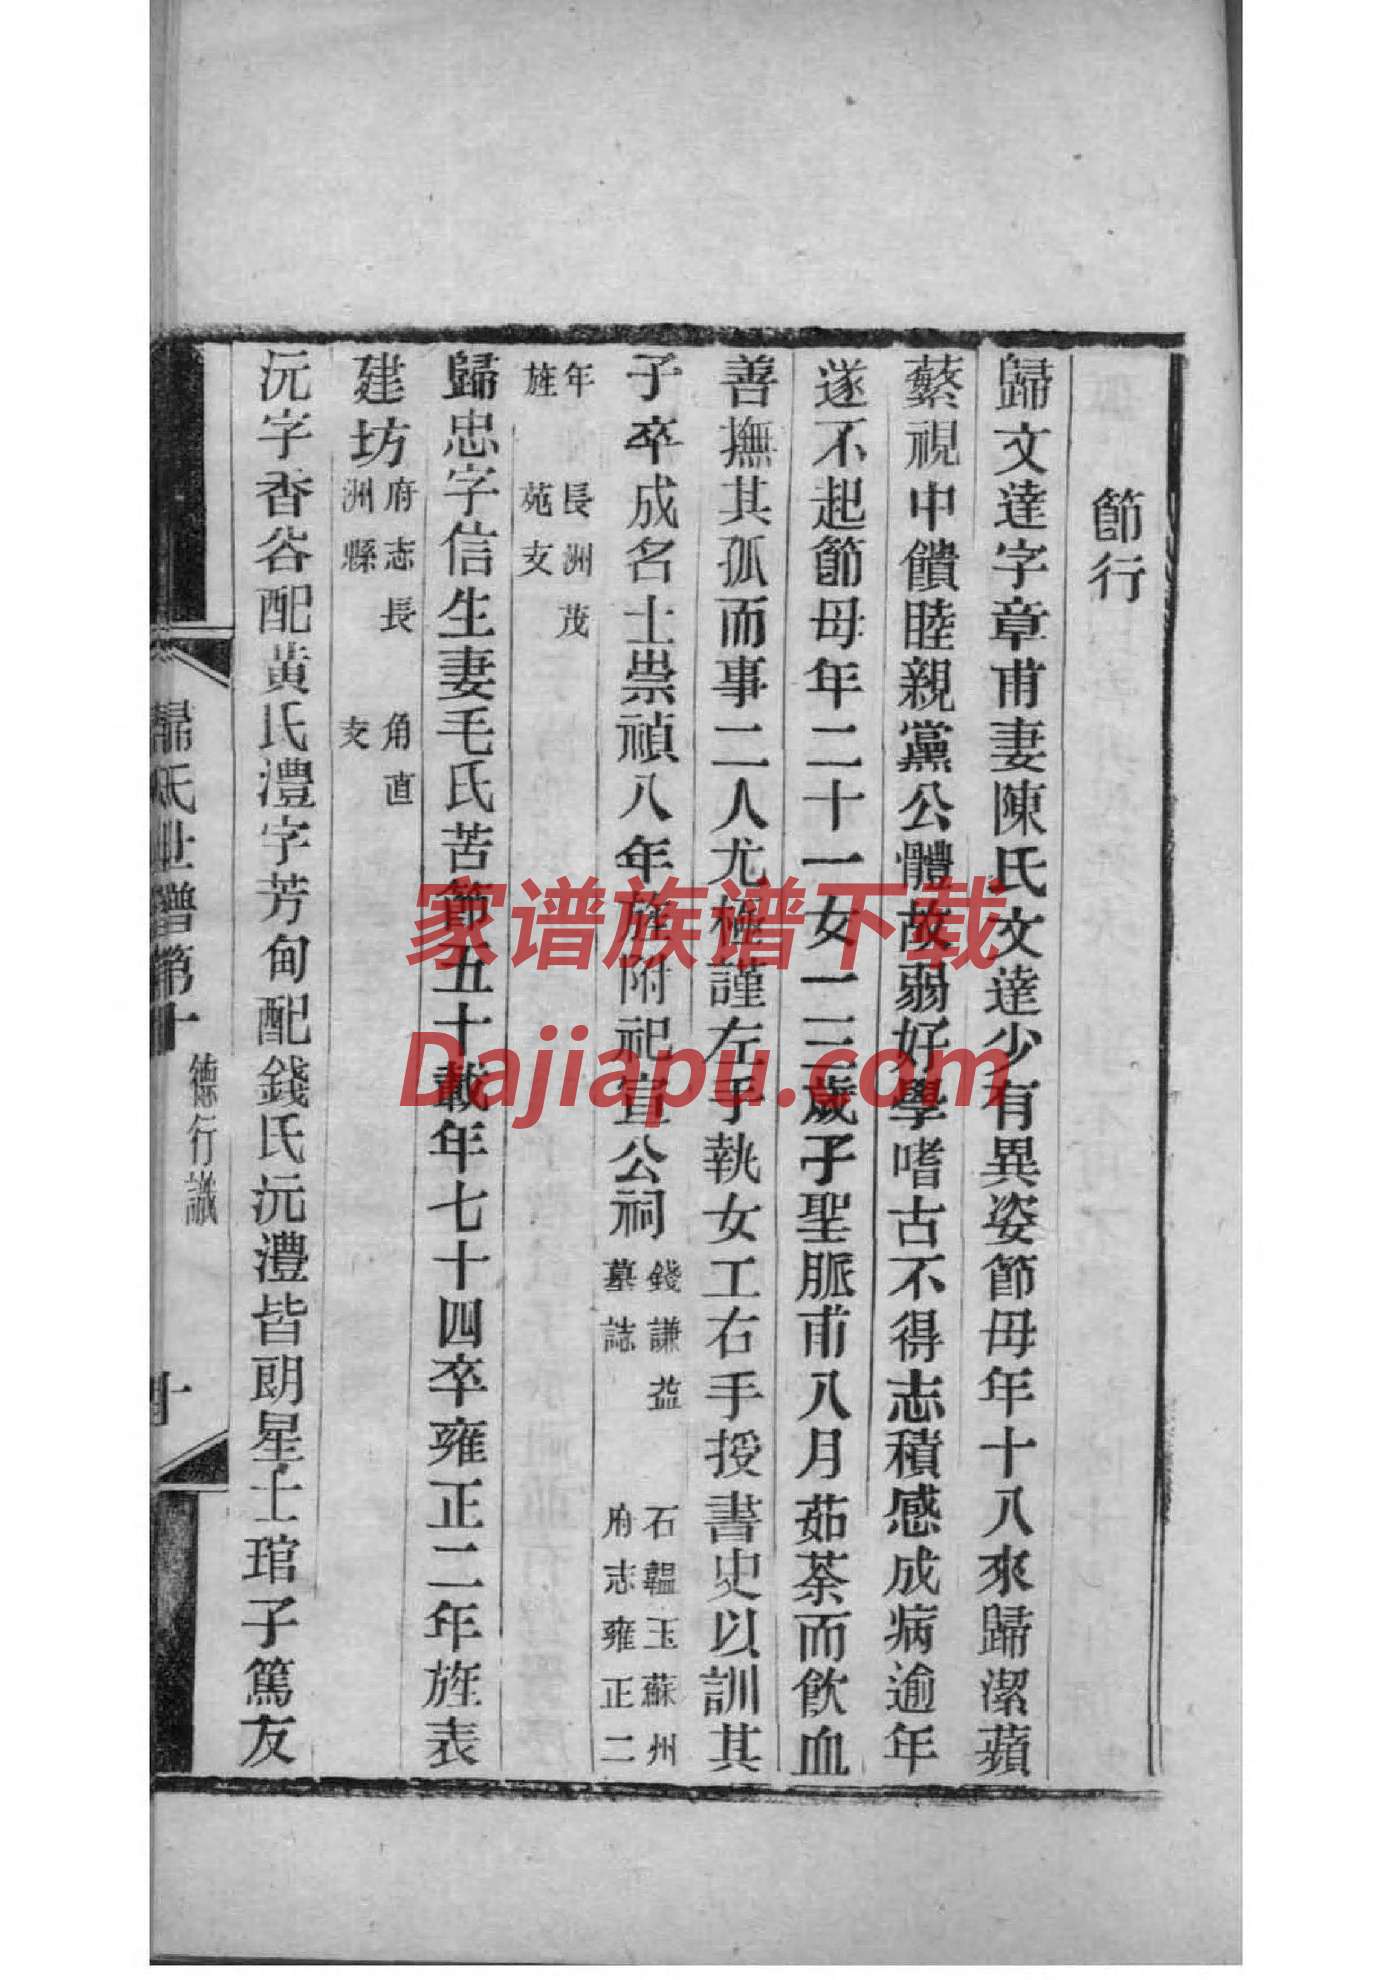 節行
歸文達字章甫妻陳氏文達少有異姿節母年十八來歸潔蘋
蘩視中饋睦親黨公體故弱好學嗜古不得志積感成病逾年
遂不起節母年二十一女一三歲子聖脈甫八月茹荼而飲血
善撫其孤而事二人尤極謹左手執女工右手授書史以訓其
子卒成名士崇禎八年旌附祀宣公祠
錢謙益
墓誌
石韞玉蘇州
府志雍正二
年 長洲茂
旌 苑支
歸忠字信生妻毛氏苦節五十載年七十四卒雍正二年旌表
建坊
府志長
洲縣
角直
支
沅字香谷配黃氏澧字芳甸配錢氏沅澧皆朗星士琯子篤友
歸氏世譜第十
德行誌
十
家谱族谱下载
Dajiapu.com